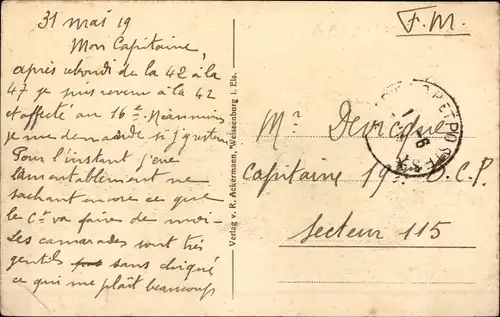 31 mai 19
Mon Capitaine,
après rebondi de la 42 à la
47 je suis revenu à la 42
et affecté au 16e. Néanmoins
je me demande si j'y resterai
Pour l'instant j'erre
lamentablement ne
sachant encore ce que
le Ct va faire de moi -
Les camarades sont très
gentils sans chiqué
ce qui me plaît beaucoup
Verlag v. R. Ackermann, Weissenburg i. Els.
F.M.
Mr Devicque
Capitaine 19e B.C.P.
Secteur 115